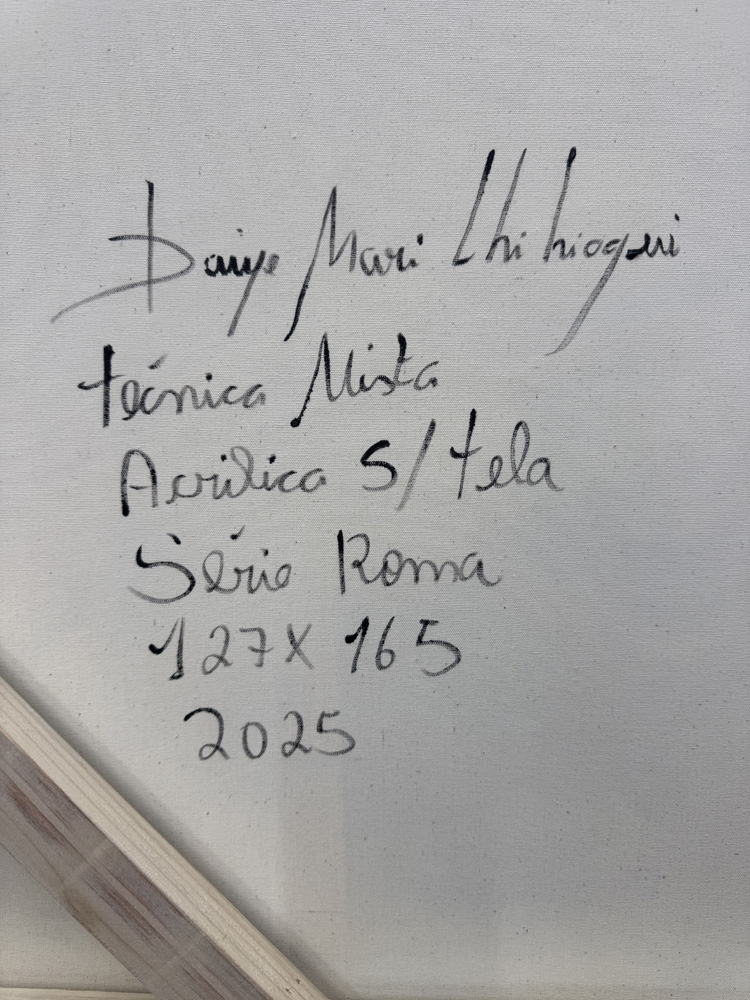 Daiye Mari Chihiogui
Técnica Mista
Acrilica S/tela
Série Roma
127X 165
2025